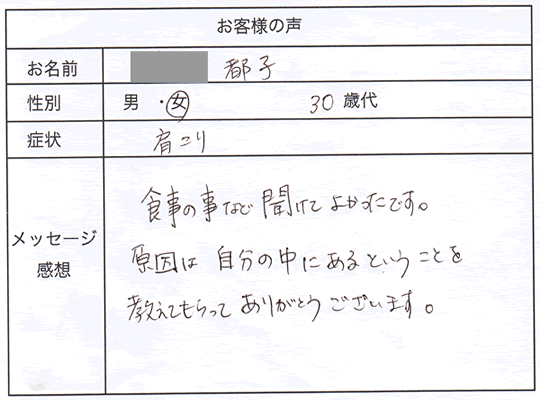 お客様の声
お名前 都子
性別 男・女 30歳代
症状 肩こり
メッセージ
感想
食事の事など聞けてよかったです。
原因は自分の中にあるということを
教えてもらってありがとうございます。